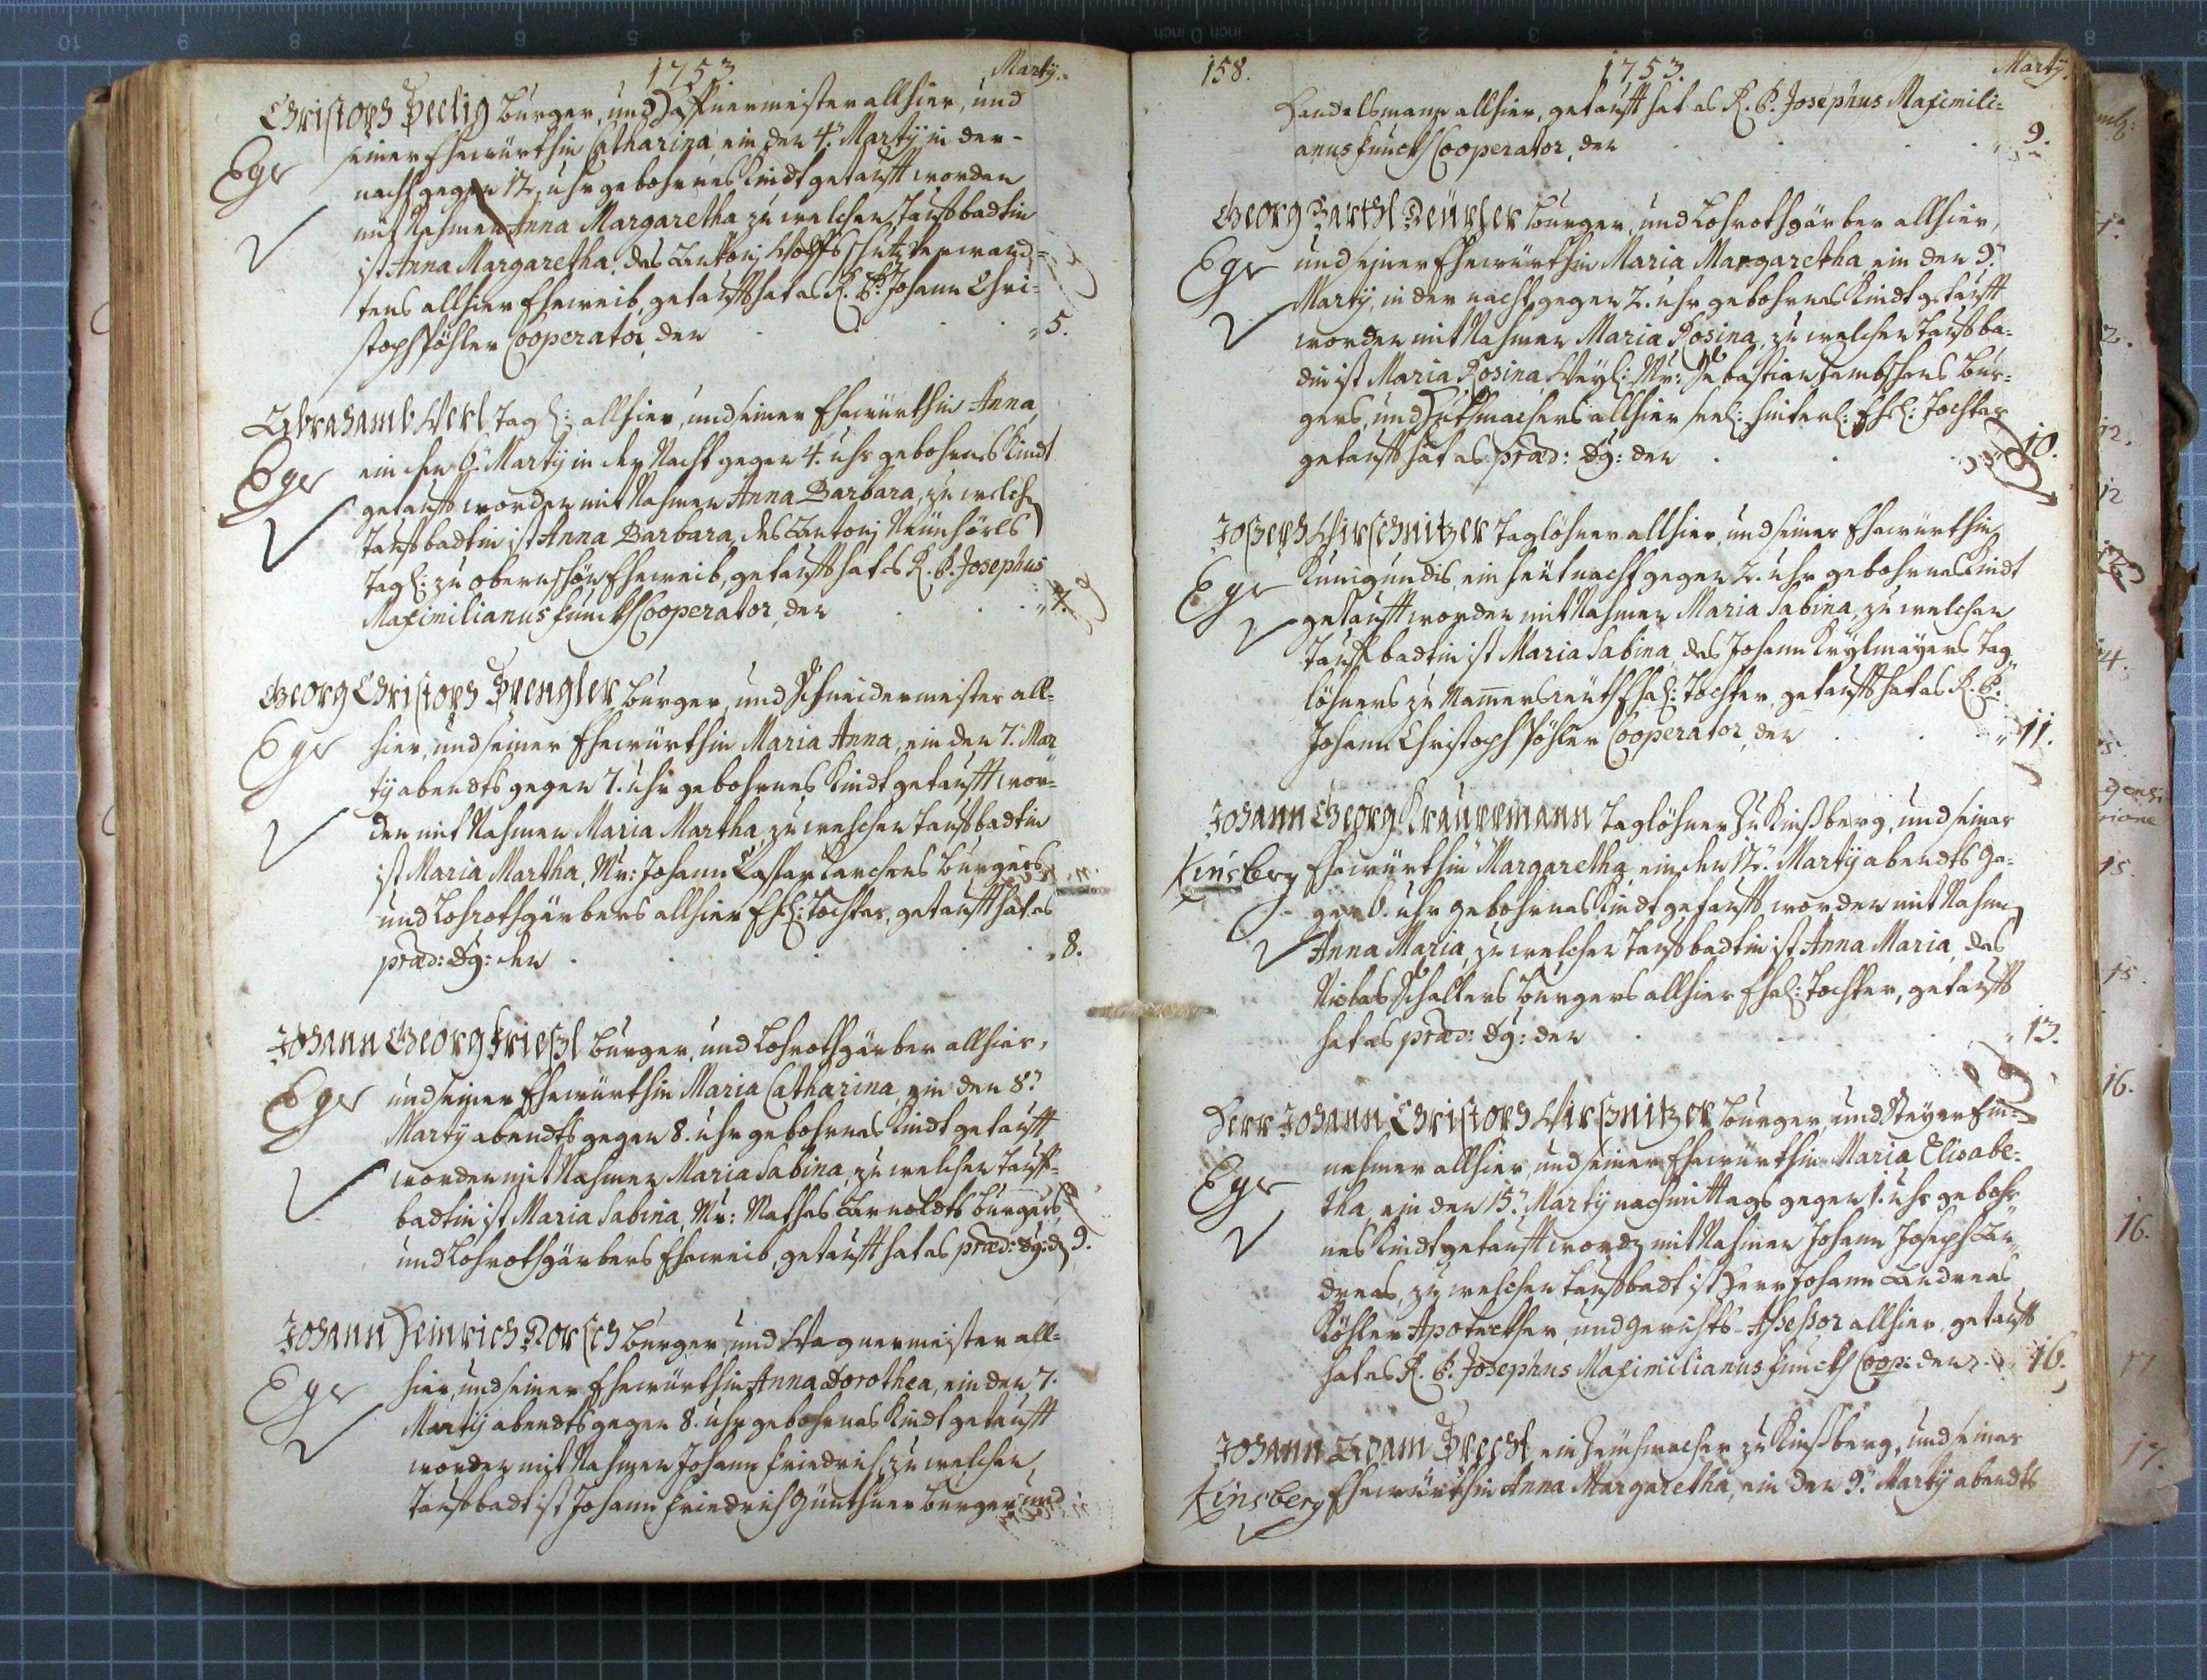 1753. Martÿ.
Christoph Heelig burger, und Haffnermeister allhier, und
Eger seiner Ehewürthin Catharina, ein den 4.t Martÿ in der-
nacht gegen 12. uhr gebohrnes Kindt getaufft worden
mit Nahmen Anna Margaretha, zu welcher Taufbadtin
ist Anna Margaretha, des Antonj Wolffs schutz Verwand-
tens allhier Eheweib, getaufft hat es R. P. Johann Chri-
stoph Pöhler Cooperator, den 5.
Abrahamb Werl Tagl: allhier, und seiner Ehewürthin Anna,
Eger ein den 6.t Martÿ in der Nacht gegen 4. uhr gebohrnes Kindt
getaufft worden mit Nahmen Anna Barbara, zu welcher
Taufbadtin ist Anna Barbara, des Antonj
Tagl: zu obernschön Eheweib, getaufft hat es R. P. Josephus
Maximilianus Funck Cooperator, den 7.
Georg Christoph Sprengler burger, und Schneidermeister all-
Eger hier, und seiner Ehewürthin Maria Anna, ein den 7. Mar
tÿ abendts gegen 7. uhr gebohrnes Kindt getaufft wor-
den mit Nahmen Maria Martha, zu welcher Taufbadtin
ist Maria Martha, Mr: Johann Caspar Burgers
und Lohrothgärbers allhier Ehel: Tochter, getaufft hat es
præd: Dg: den 8.
Johann Georg Friessl burger, und Lohrothgärber allhier,
Eger und seiner Ehewürthin Maria Catharina, ein den 8.t
Martÿ abendts gegen 8. uhr gebohrnes Kindt getaufft
worden mit Nahmen Maria Sabina, zu welcher Tauff-
badtin ist Maria Sabina, Mr: Mathes Arnoldts burgers
und Lohrothgärbers Eheweib, getaufft hat es præd: Dg: d 9.
Johann Heinrich Dorsch burger, und Wagnermeister all-
Eger hier, und seiner Ehewürthin Anna Dorothea, ein den 7.
Martÿ abendts gegen 8. uhr gebohrnes Kindt getaufft
worden mit Nahmen Johann Friedrich, zu welcher
Taufbadt ist Johann Friedrich Günthner burger und
158. 1753. Martÿ.
Handelsmann allhier, getaufft hat es R. P. Josephus Maximili-
anus Funck Cooperator, den 9.
Georg Barthl burger, und Lohrothgärber allhier,
Eger und seiner Ehewürthin Maria Margaretha ein den 9.t
Martÿ, in der nacht gegen 2. uhr gebohrnes Kindt getaufft
worden mit Nahmen Maria Rosina, zu welcher Taufba-
din ist Maria Rosina, Weyl: Mr: Sebastian bur-
gers, und Huthmachers allhier seel: hinterl: Ehel: Tochter
getaufft hat es præd: Dg: den 10.
Joseph Wirschnitzer Taglöhner allhier, und seiner Ehewürthin
Eger Kunigundis, ein heut nacht gegen 2. uhr gebohrnes Kindt
getaufft worden mit Nahmen Maria Sabina, zu welcher
Tauffbadtin ist Maria Sabina, des Johann Tag
löhners zu Ehel: Tochter, getaufft hat es R. P.
Johann Christoph Pöhler Cooperator, den 11.
Johann Georg Taglöhner zu Kinßberg, und seiner
Kinsberg Ehewürthin Margaretha ein den 12.t Martÿ abendts ge-
gen 6. uhr gebohrnes Kindt getaufft worden mit Nahmen
Anna Maria, zu welcher Taufbadtin ist Anna Maria, des
Niclas Schallers burgers allhier Ehel: Tochter, getaufft
hat es præd: Dg: den 13.
Herr Johann Christoph Wirschnitzer burger, und Steyer Ein-
Eger nehmer allhier, und seiner Ehewürthin Maria Elisabe-
tha, ein den 15.t Martÿ nachmittags gegen 1. uhr gebohr
nes Kindt getaufft worden mit Nahmen Johann Joseph An
dreas, zu welcher Taufbadt ist Herr Johann Andreas
Köhler Apotecker, und Gerichts-Assessor allhier, getaufft
hat es R. P. Josephus Maximilianus Funck Coop: den 16.
Johann Adam ein zu Kinßberg, und seiner
Kinsberg Ehewürthin Anna Margaretha, ein den 9.t Martÿ abendts